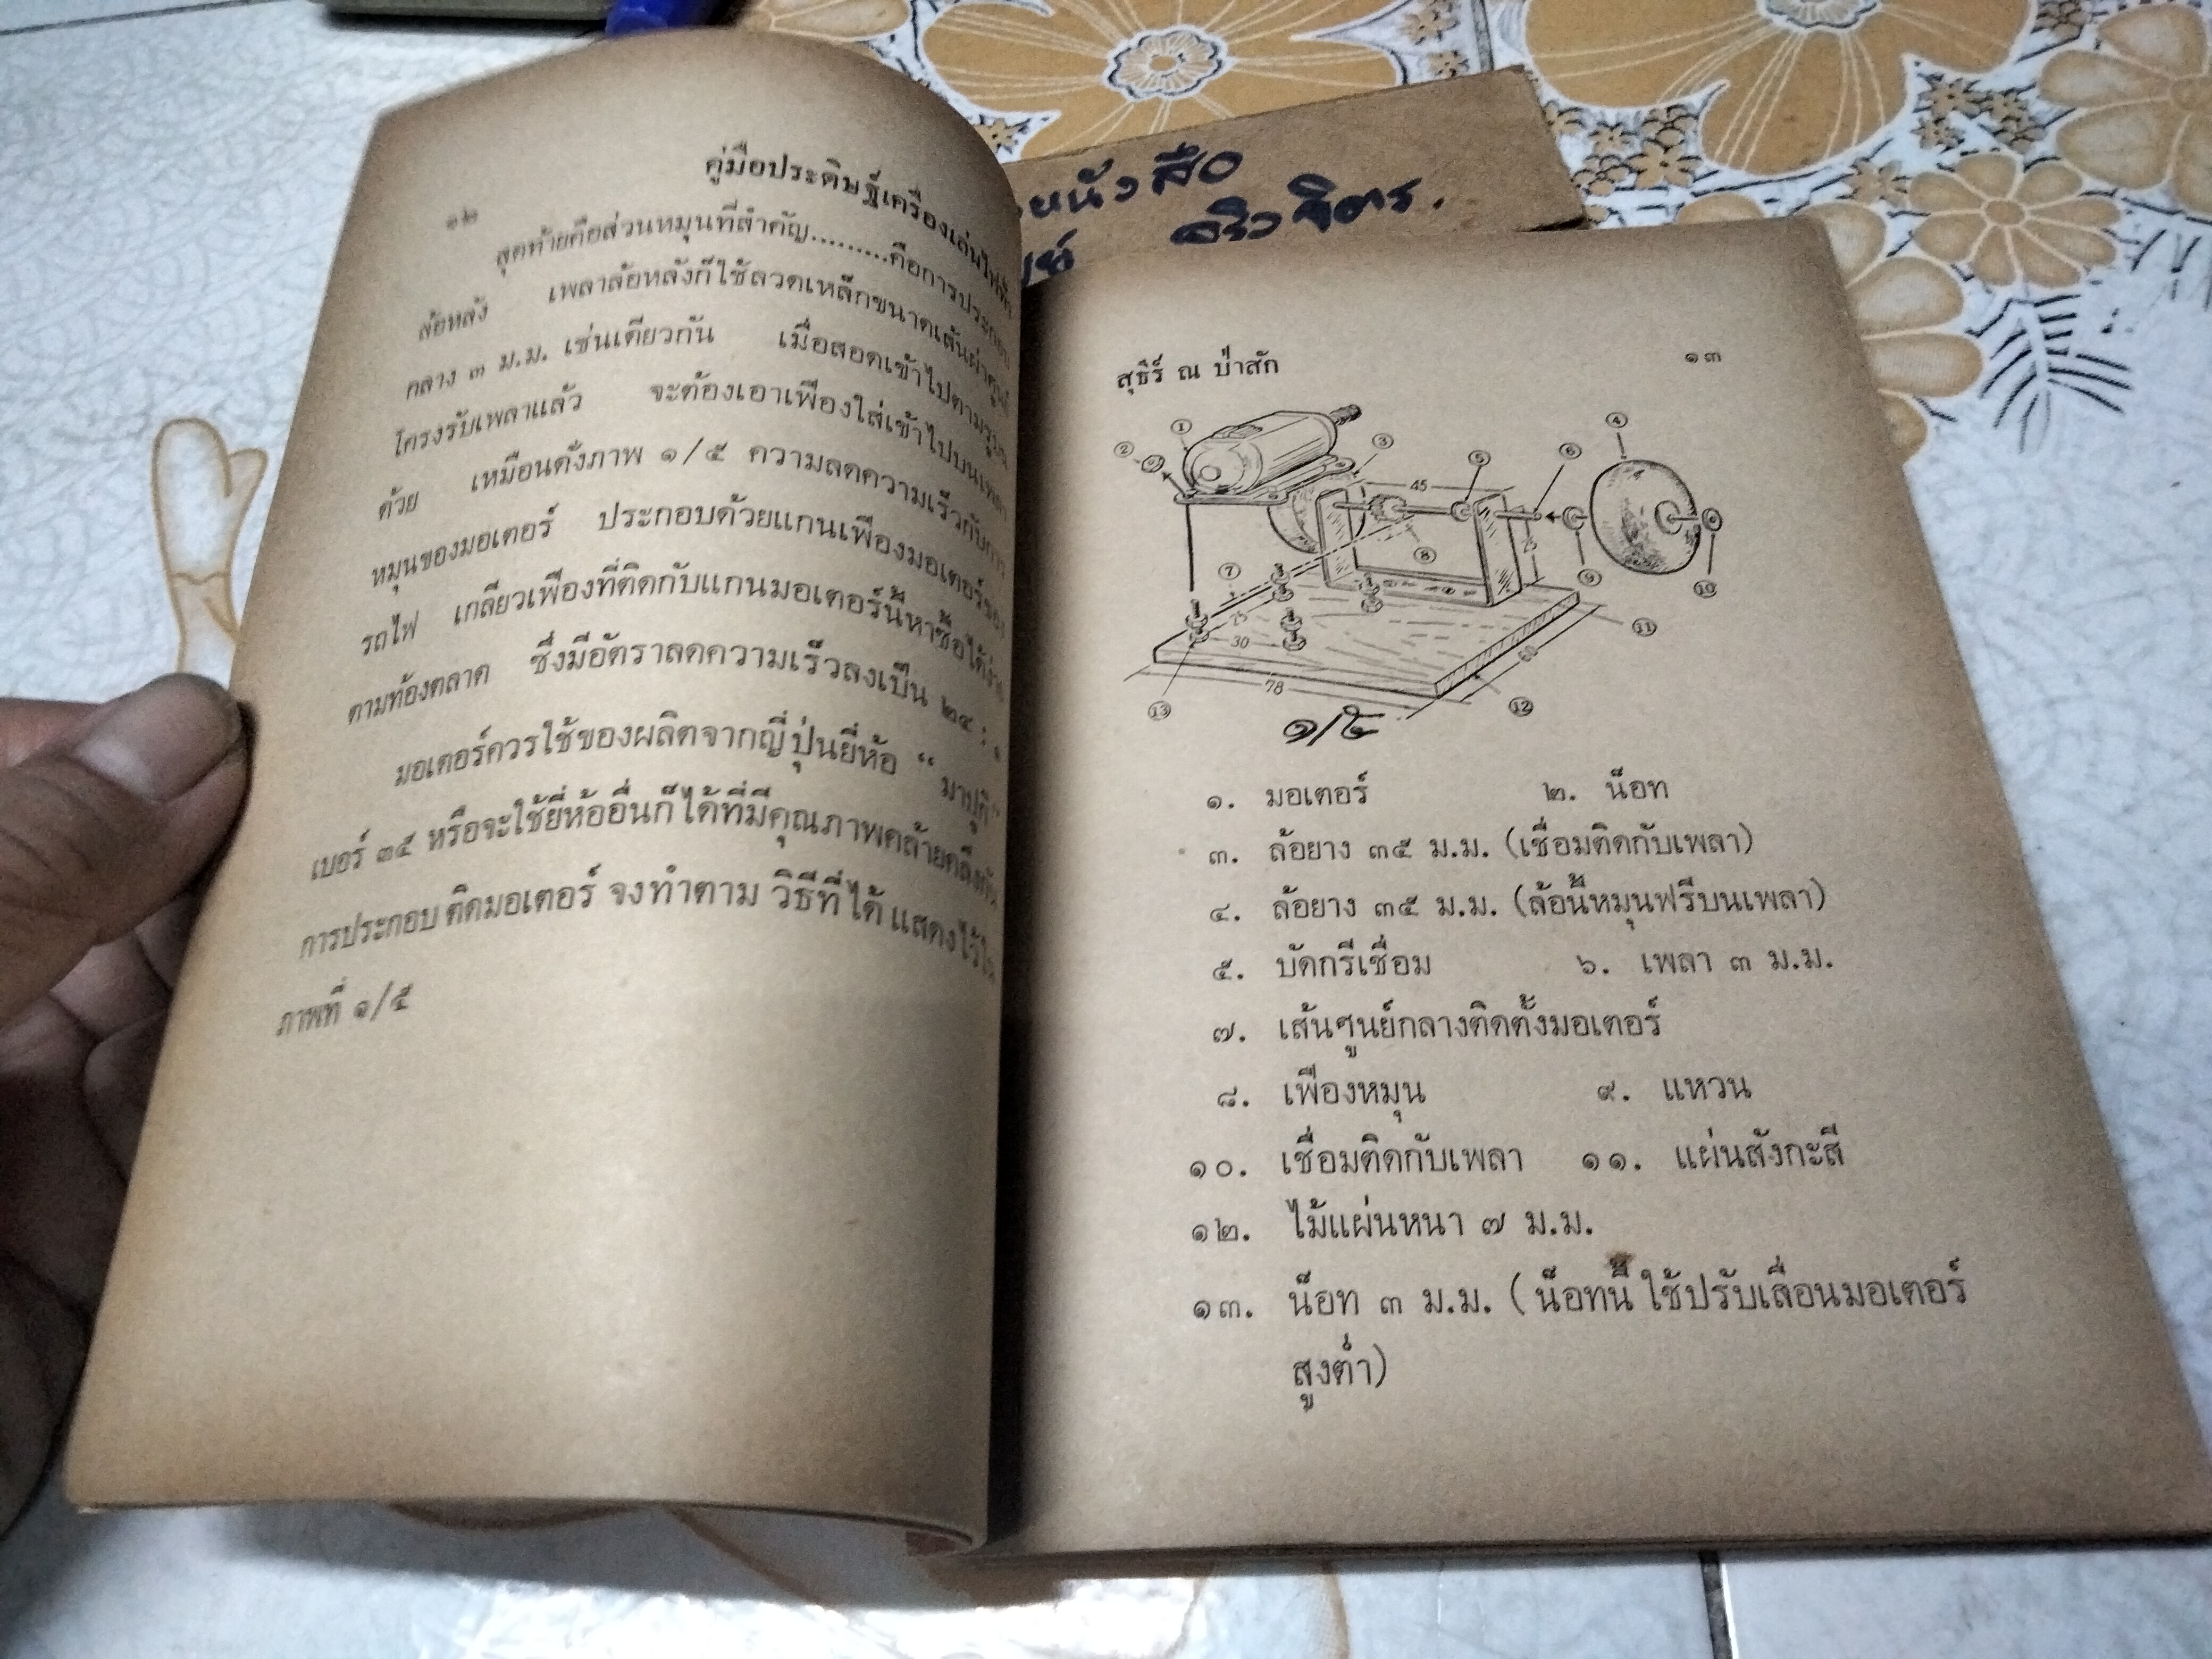 ๑๒
คู่มือประดิษฐ์เครื่องเล่นไฟฟ้า
สุดท้ายคือส่วนหมุนที่สำคัญ.........คือการประกอบ
ล้อหลัง เพลาล้อหลังก็ใช้ลวดเหล็กขนาดเส้นผ่าศูนย์
กลาง ๓ ม.ม. เช่นเดียวกัน เมื่อสอดเข้าไปตามรูบน
โครงรับเพลาแล้ว จะต้องเอาเฟืองใส่เข้าไปบนเพลา
ด้วย เหมือนดั่งภาพ ๑/๕ ความลดความเร็วกับการ
หมุนของมอเตอร์ ประกอบด้วยแกนเฟืองมอเตอร์ของ
รถไฟ เกลียวเฟืองที่ติดกับแกนมอเตอร์นี้หาซื้อได้ง่าย
ตามท้องตลาด ซึ่งมีอัตราลดความเร็วลงเป็น ๒๔ : ๑
มอเตอร์ควรใช้ของผลิตจากญี่ปุ่นยี่ห้อ “ มาบูกิ”
เบอร์ ๓๕ หรือจะใช้ยี่ห้ออื่นก็ได้ที่มีคุณภาพคล้ายคลึงกัน
การประกอบติดมอเตอร์ จงทำตาม วิธีที่ได้ แสดงไว้ใน
ภาพที่ ๑/๕
หนังสือ
สุธิร์ ณ ป่าสัก
๑๓
1
2
3
4
5
6
45
7
8
9
10
25
75
30
11
60
78
12
13
๑/๕
๑. มอเตอร์ ๒. น็อท
๓. ล้อยาง ๓๕ ม.ม. (เชื่อมติดกับเพลา)
๔. ล้อยาง ๓๕ ม.ม. (ล้อนี้หมุนฟรีบนเพลา)
๕. บัดกรีเชื่อม ๖. เพลา ๓ ม.ม.
๗. เส้นศูนย์กลางติดตั้งมอเตอร์
๘. เฟืองหมุน ๙. แหวน
๑๐. เชื่อมติดกับเพลา ๑๑. แผ่นสังกะสี
๑๒. ไม้แผ่นหนา ๗ ม.ม.
๑๓. น็อท ๓ ม.ม. ( น็อทนี้ ใช้ปรับเลื่อนมอเตอร์
สูงต่ำ)